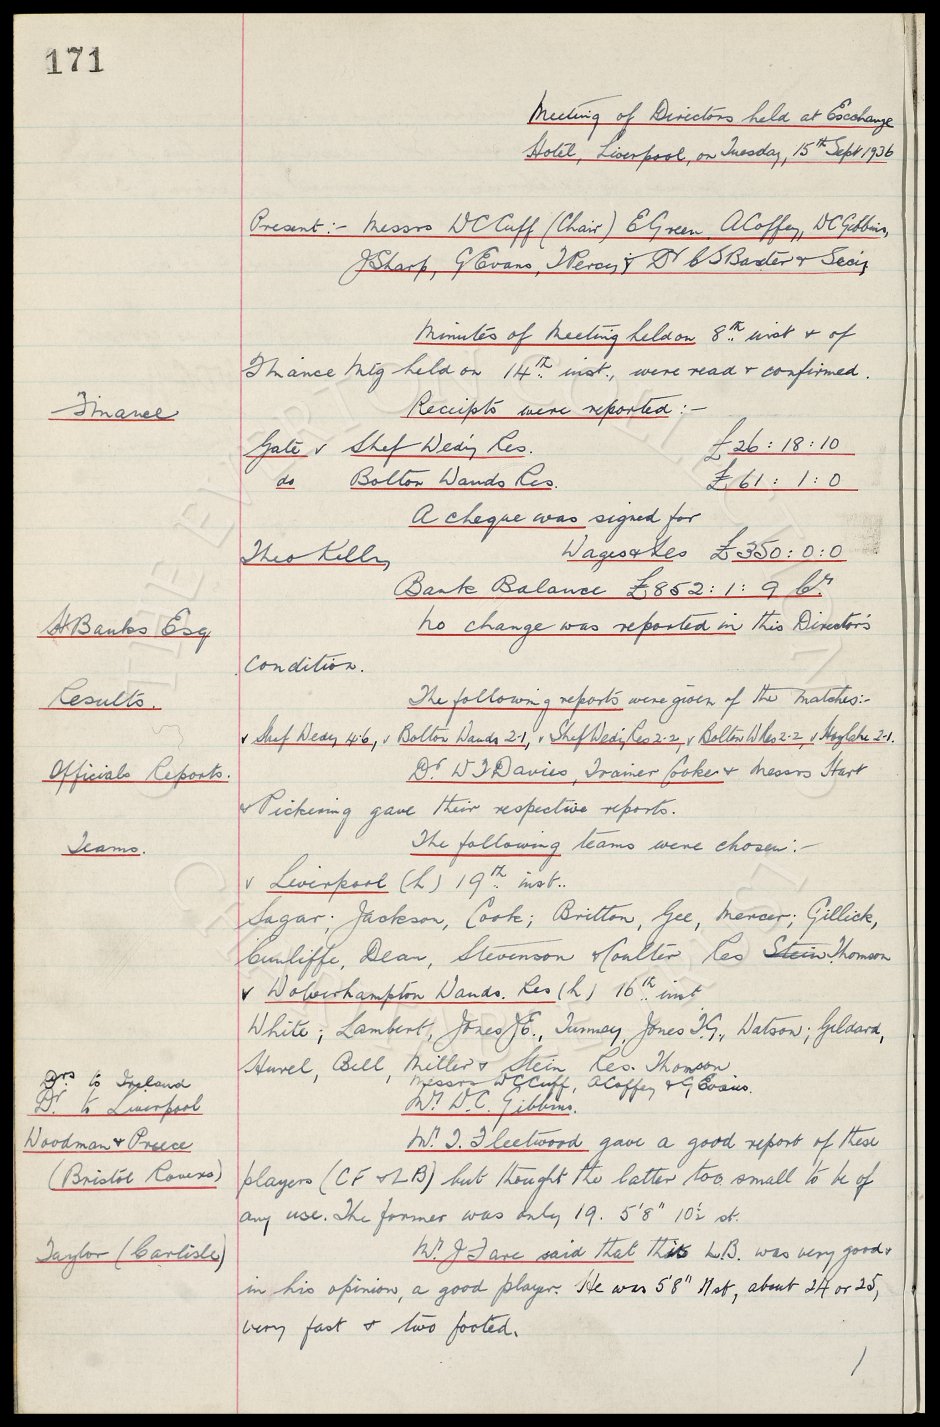 171
Meeting of Directors held at Exchange
Hotel, Liverpool, on Tuesday, 15th Sept 1936
Present:- Messrs WC Cuff (Chair) E Green, A Coffey, DC Gibbins,
J Sharp, G Evans, T Percy & Dr C S Baxter & Secy
Minutes of Meeting held on 8th inst & of
Finance Mtg held on 14th inst., were read & confirmed.
Finance
Receipts were reported:-
Gate v Shef Wed'y Res. £26:18:10
do Bolton Wands Res. £61:1:0
A cheque was signed for
Theo Kelly Wages & Fees £350:0:0
Bank Balance £852:1:9 Cr
H Banks Esq No change was reported in this Director's
condition.
Results. The following reports were given of the matches:-
v Shef Wedy 4-6, v Bolton Wands 2-1, v Shef Wedy Res 2-2, v Bolton W Res 2-2, v Hoylake 2-1.
Officials Reports. Dr. W T Davies, Trainer Cooke & Messrs Hart
& Pickering gave their respective reports.
Teams. The following teams were chosen:-
v Liverpool (h) 19th inst..
Sagar; Jackson, Cook; Britton, Gee, Mercer; Gillick,
Cunliffe, Dean, Stevenson & Coulter Res Stein Thomson
v Wolverhampton Wands. Res (h) 16th inst
White; Lambert, Jones J.E., Tunney, Jones T.G., Watson; Geldard,
Hurel, Bell, Miller & Stein Res. Thomson
Drs to Ireland Messrs WC Cuff, A Coffey & G Evans.
Dr to Liverpool Mr. D.C. Gibbins.
Woodman & Preece Mr. T. Fleetwood gave a good report of these
(Bristol Rovers) players (CF & LB) but thought the latter too small to be of
any use. The former was only 19. 5'8" 10½ st.
Taylor (Carlisle) Mr J Fare said that this L.B. was very good &
in his opinion, a good player. He was 5'8" 11st, about 24 or 25,
very fast & two footed.
THE EVERTON COLLECTION
CHARITABLE TRUST